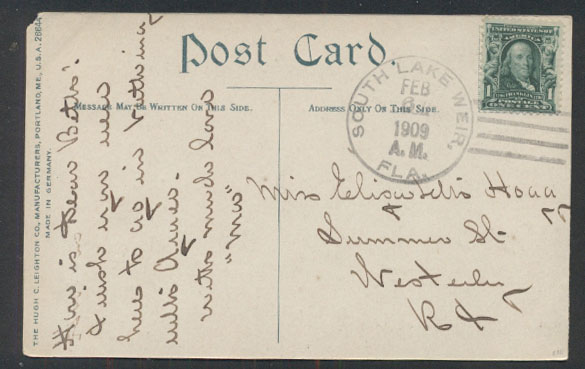 Post Card
MESSAGE MAY BE WRITTEN ON THIS SIDE.
ADDRESS ONLY ON THIS SIDE.
THE HUGH C. LEIGHTON CO., MANUFACTURERS, PORTLAND, ME., U.S.A. 28644
MADE IN GERMANY.
SOUTH LAKE WEIR,
FEB
1909
A.M.
FLA.
1 1
POSTAGE
How is dear
I wish you were
here to go in bathing
with
with much love
Miss
Summer St.
Westerly
R I